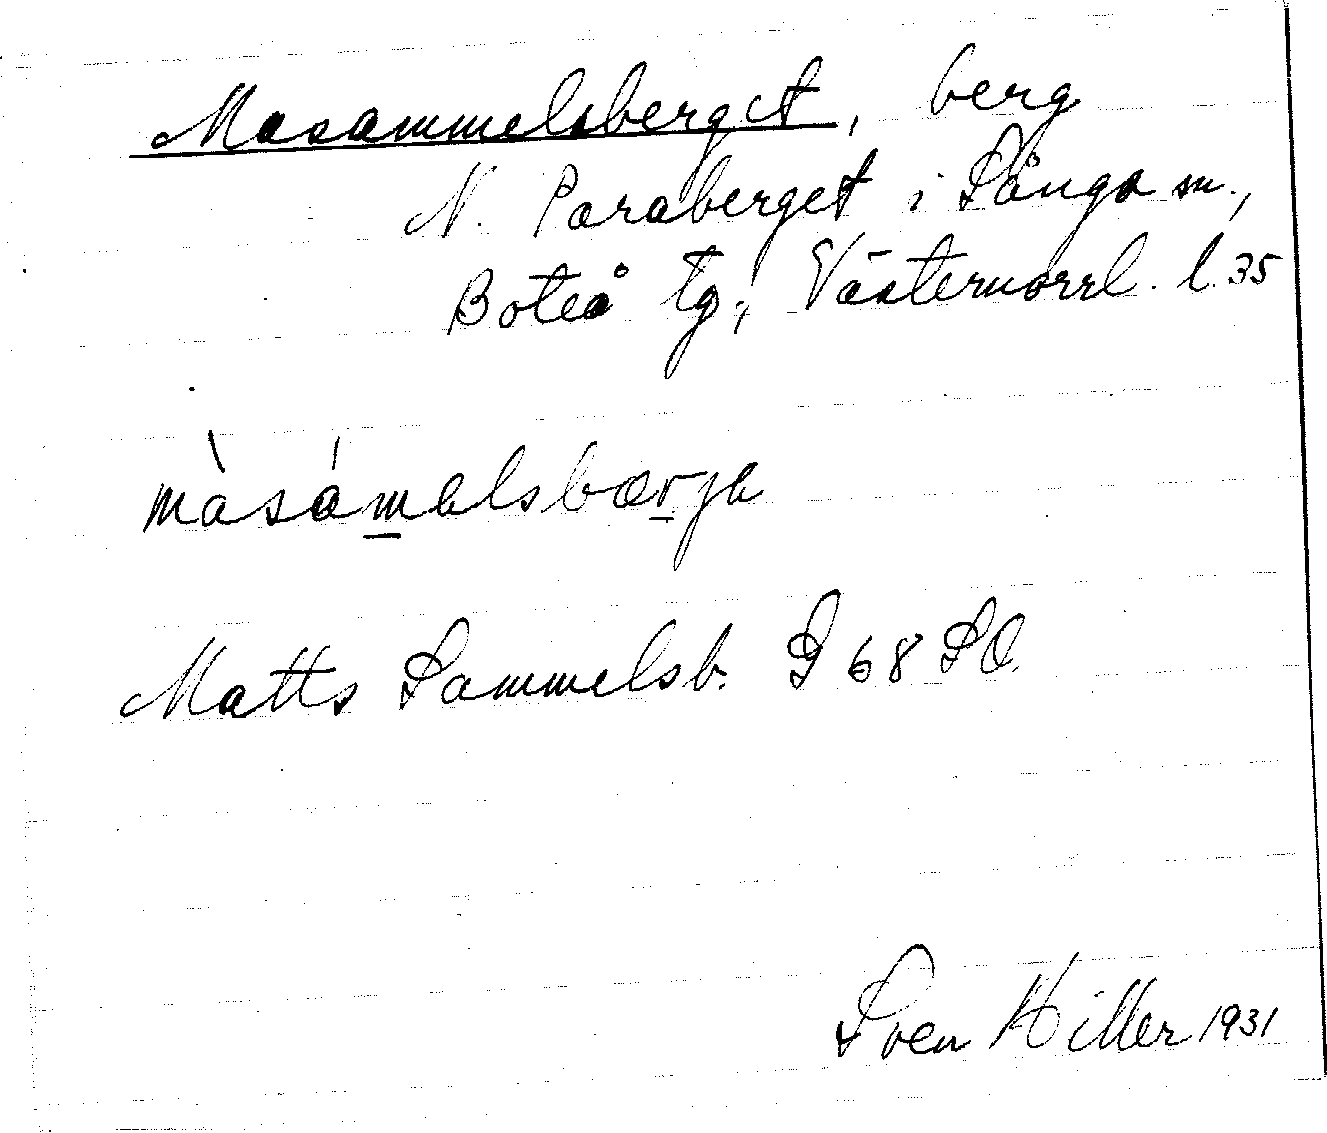 Masammelsberget, berg
N. Paraberget i Sånga sn.,
Boteå tg., Västernorrl. l. 35
màsámelsbærja
Matts Sammelsb. G 68 SO.
Sven Hiller 1931